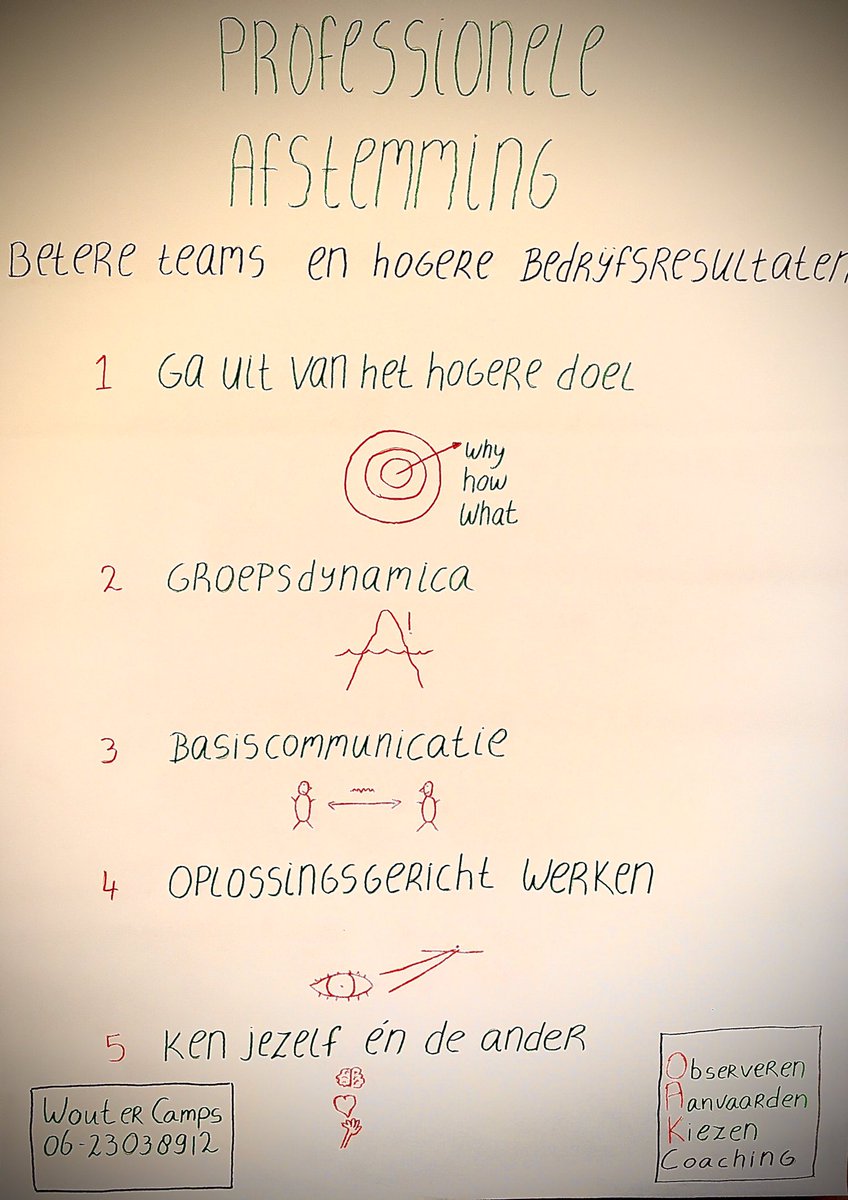 PROFESSIONELE
AFSTEMMING
BETERE TEAMS EN HOGERE BEDRIJFSRESULTATEN
1 GA UIT VAN HET HOGERE DOEL
why
how
what
2 GROEPSDYNAMICA
!
3 BASISCOMMUNICATIE
4 OPLOSSINGSGERICHT WERKEN
5 KEN JEZELF ÉN DE ANDER
Wouter Camps
06-23038912
Observeren
Aanvaarden
Kiezen
Coaching